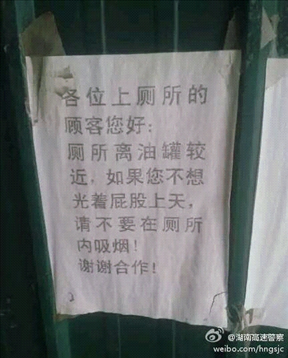 各位上厕所的
顾客您好：
厕所离油罐较
近，如果您不想
光着屁股上天，
请不要在厕所
内吸烟！
谢谢合作！
@湖南高速警察
weibo.com/hngsjc